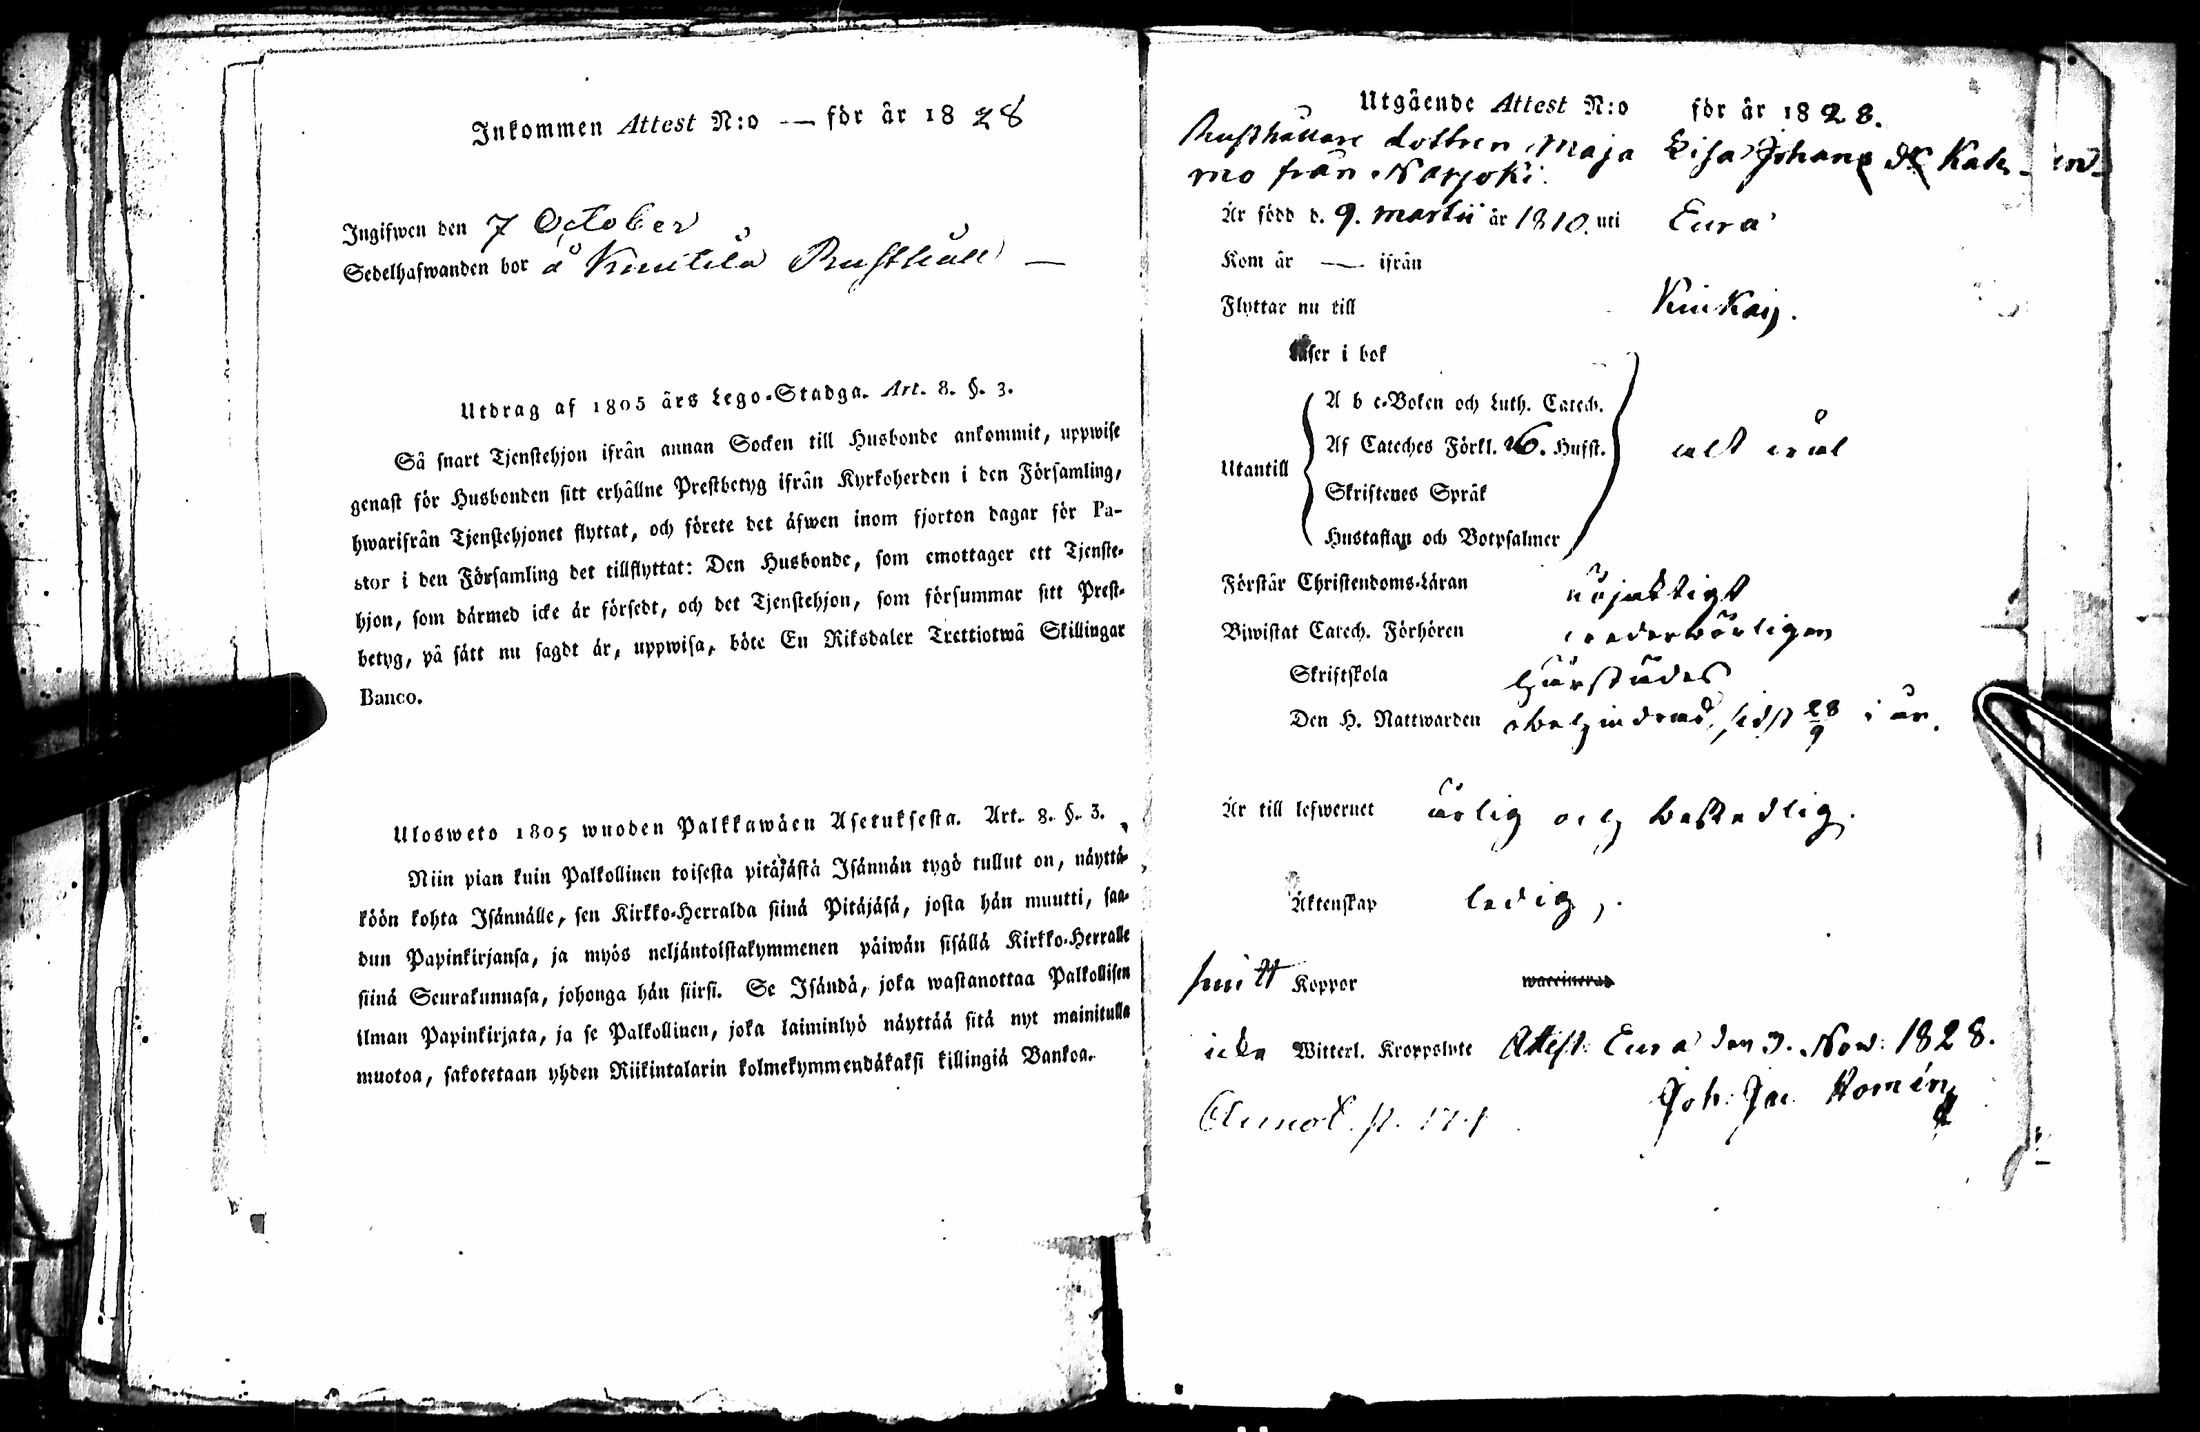 Inkommen Attest N:o — för år 1828
Ingifwen den 7 October
Sedelhafwanden bor å Knuitila Rusthåll —
Utdrag af 1805 års Lego-Stadga. Art. 8. §. 3.
Så snart Tjenstehjon ifrån annan Socken till Husbonde ankommit, uppwise
genast för Husbonden sitt erhållne Prestbetyg ifrån Kyrkoherden i den Församling,
hwarifrån Tjenstehjonet flyttat, och förete det äfwen inom fjorton dagar för Pa-
stor i den Församling det tillflyttat: Den Husbonde, som emottager ett Tjenste-
hjon, som därmed icke är försedt, och det Tjenstehjon, som försummar sitt Prest-
betyg, på sätt nu sagdt är, uppwisa, böte En Riksdaler Trettiotwå Skillingar
Banco.
Ulosweto 1805 wuoden Palkkawäen Asetuksesta. Art. 8. §. 3.
Niin pian kuin Palkollinen toisesta pitäjästä Isännän tygö tullut on, näyttä-
köön kohta Isännälle, sen Kirkko-Herralda siinä Pitäjäsä, josta hän muutti, saa-
dun Papinkirjansa, ja myös neljäntoistakymmenen päiwän sisällä Kirkko-Herralle
siinä Seurakunnasa, johonga hän siirsi. Se Isändä, joka wastanottaa Palkollisen
ilman Papinkirjata, ja se Palkollinen, joka laiminlyö näyttää sitä nyt mainitulla
muotoa, sakotetaan yhden Riikintalarin kolmekymmendäkaksi killingiä Bankoa.
Utgående Attest N:o för år 1828.
Rusthållare dottren Maja Lisa Johans dr
från Narjoki.
Är född d. 9. Martii år 1810. uti Eura
Kom år — ifrån
Flyttar nu till Kiukais.
Läser i bok
Utantill
A b c-Boken och Luth. Catech.
Af Cateches Förkl. 26. Hufst. alt wäl
Skriftenes Språk
Hustaflan och Botpsalmer
Förstår Christendoms-Läran nöjaktigt
Biwistat Catech. Förhören
Skriftskola härstädes
Den H. Nattwarden sidst 28/9 i år.
Är till lefwernet ärlig och beskedlig.
Äktenskap ledig,
haft Koppor waccinerad
icke Witterl. Kroppslyte Attest: Eura den 3. Nov: 1828.
Joh: Jac. Homén
Annot. p.